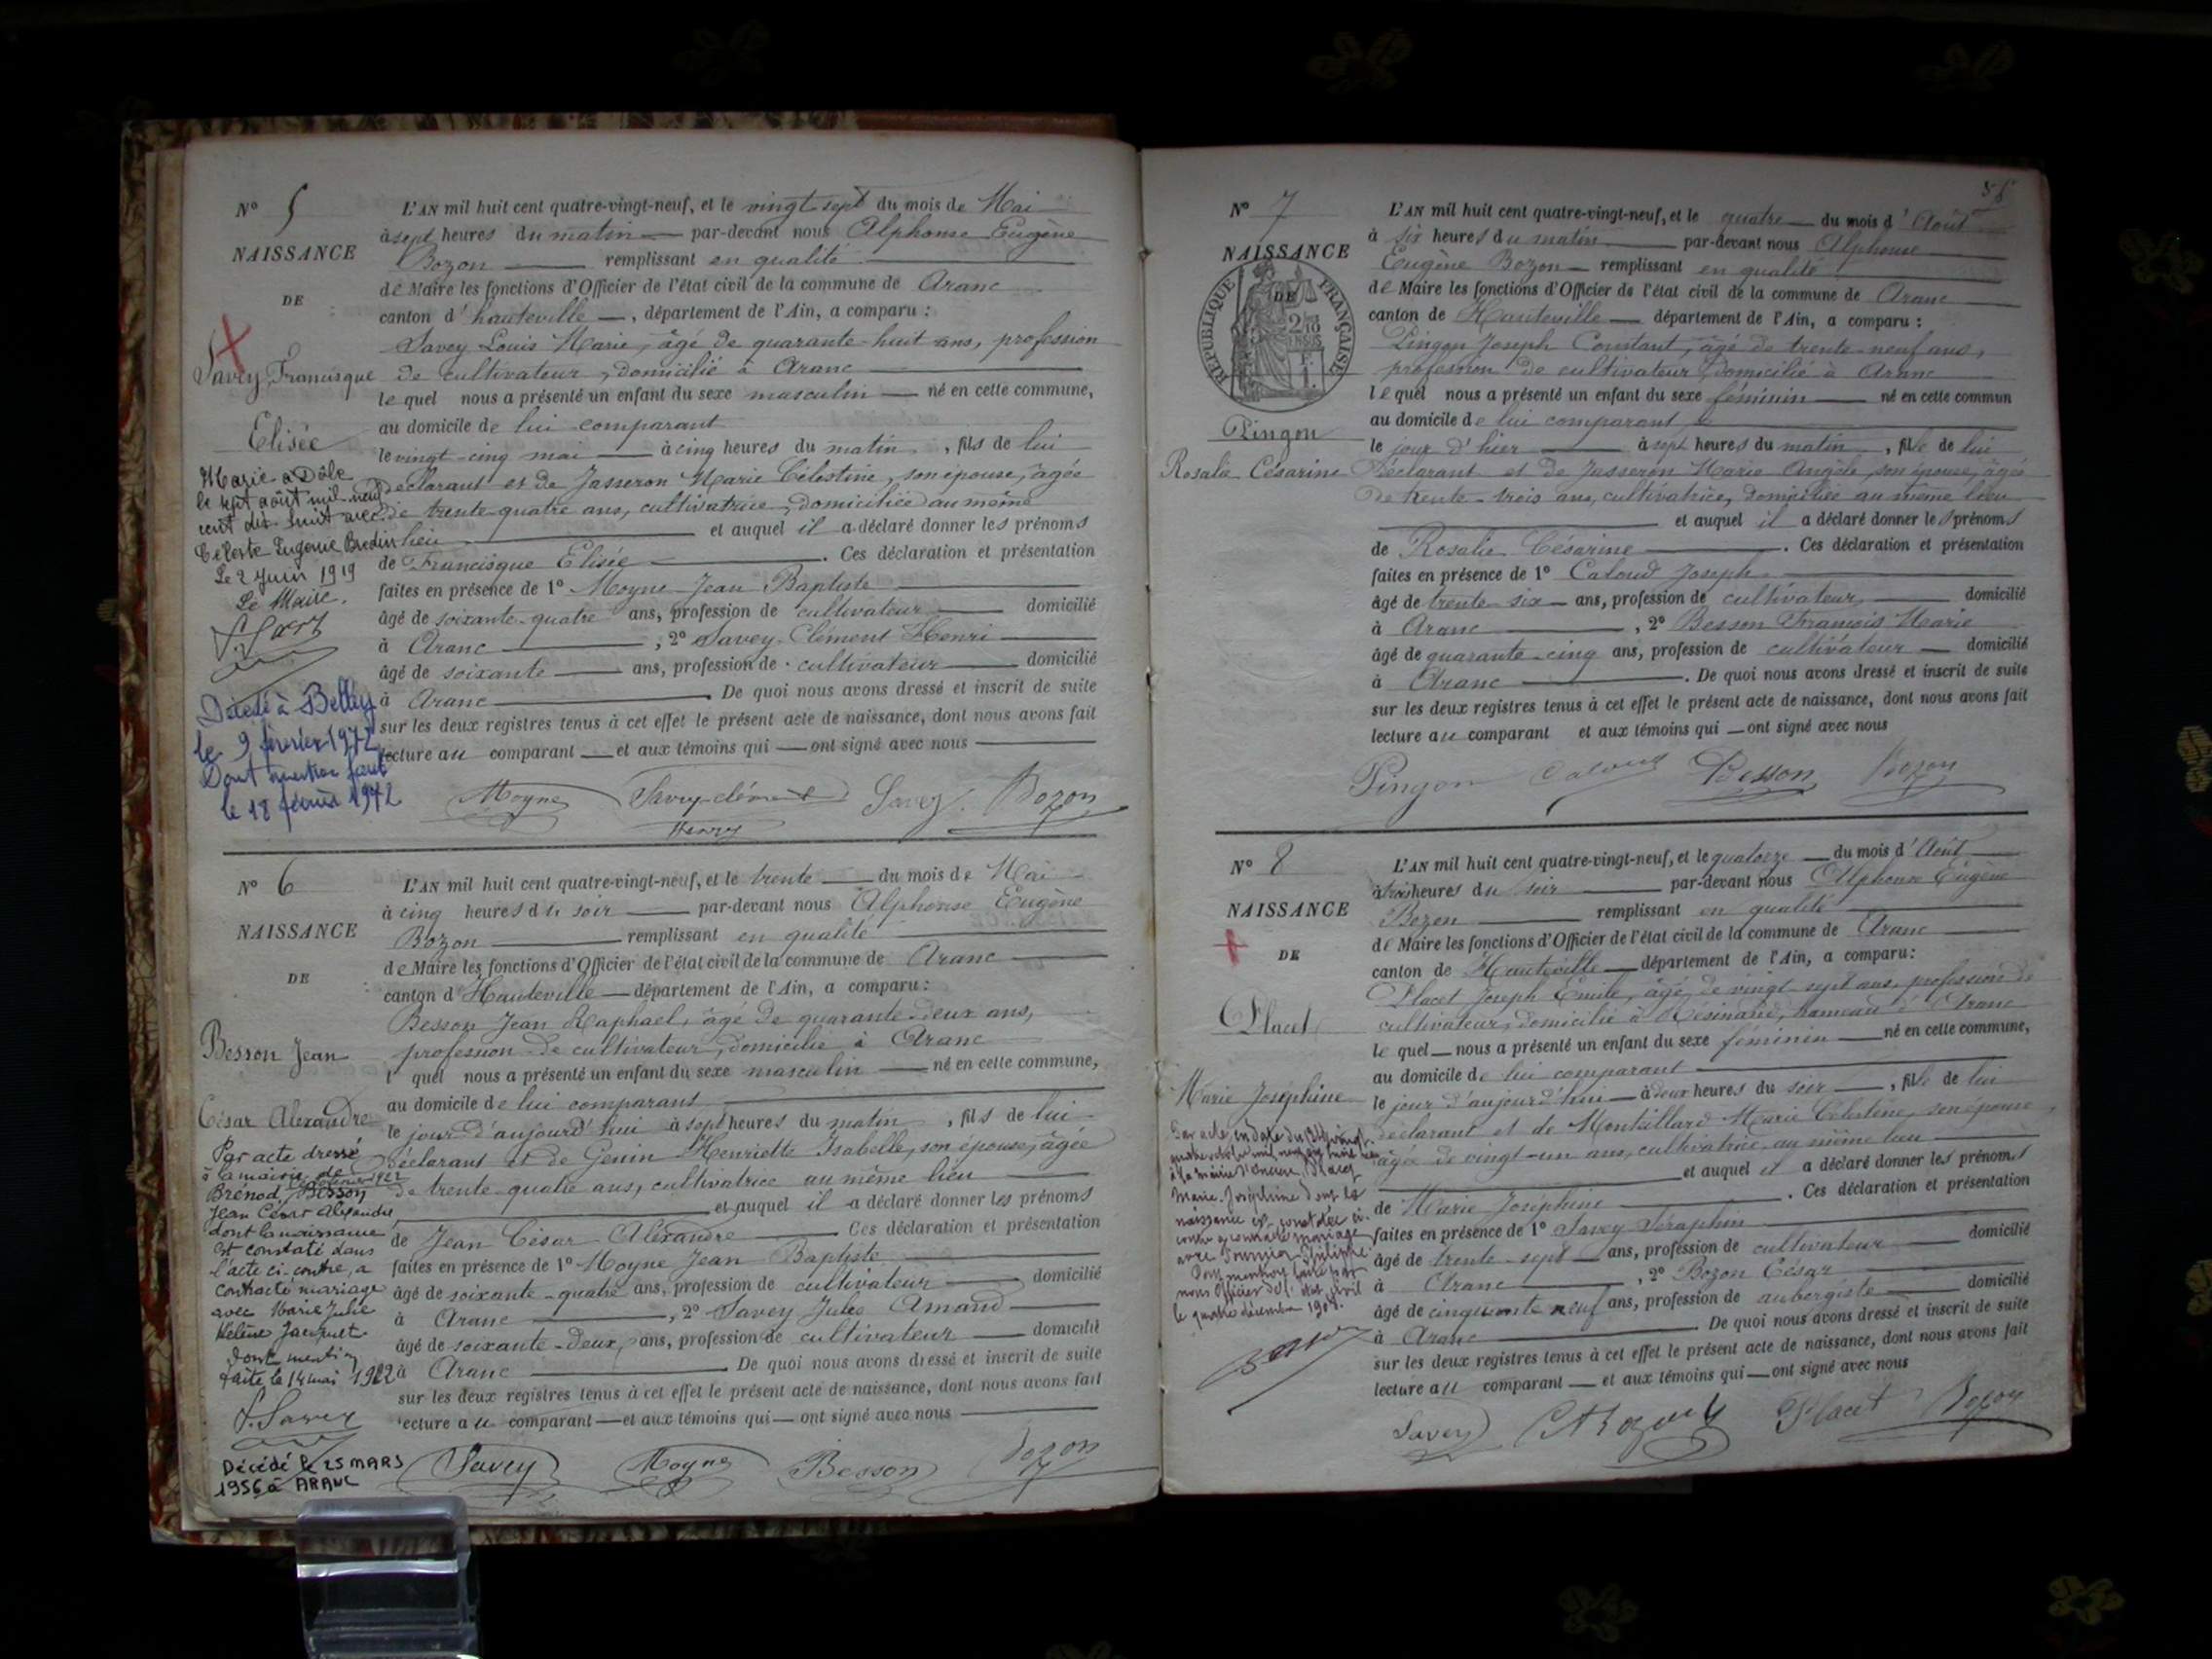 N° 5
NAISSANCE
DE
Savey Francisque
Elisée
Marié à Dôle
le sept août mil neuf
cent dix huit avec
Celeste Eugenie Bredin
Le 2 Juin 1919
Le Maire.
Décédé à Belley
le 9 février 1972
Dont mention faite
le 18 février 1972
L'AN mil huit cent quatre-vingt-neuf, et le vingt sept du mois de Mai
à sept heures du matin par-devant nous Alphonse Eugène
Bozon remplissant en qualité
de Maire les fonctions d'Officier de l'état civil de la commune de Aranc
canton d'hauteville, département de l'Ain, a comparu :
Savey Louis Marie, âgé de quarante-huit ans, profession
de cultivateur, domicilié à Aranc
le quel nous a présenté un enfant du sexe masculin né en cette commune,
au domicile de lui comparant
le vingt-cinq mai à cinq heures du matin, fils de lui
déclarant et de Jasseron Marie Célestine, son épouse, âgée
de trente-quatre ans, cultivatrice, domiciliée au même
lieu et auquel il a déclaré donner les prénoms
de Francisque Elisée. Ces déclaration et présentation
faites en présence de 1° Moyne Jean Baptiste
âgé de soixante-quatre ans, profession de cultivateur domicilié
à Aranc, 2° Savey Clément Henri
âgé de soixante ans, profession de cultivateur domicilié
à Aranc. De quoi nous avons dressé et inscrit de suite
sur les deux registres tenus à cet effet le présent acte de naissance, dont nous avons fait
lecture au comparant et aux témoins qui ont signé avec nous
Moyne Savey clément Savey Bozon
Henry
N° 6
NAISSANCE
DE
Besson Jean
César Alexandre
Par acte dressé
à la mairie de
Brénod, Besson
Jean César Alexandre
dont la naissance
est constaté dans
l'acte ci-contre, a
contracté mariage
avec Marie Julie
Hélène Jacquet
dont mention
faite le 14 mai 1922
F. Savey
Décédé le 25 MARS
1956 à ARANC
L'AN mil huit cent quatre-vingt-neuf, et le trente du mois de Mai
à cinq heures du soir par-devant nous Alphonse Eugène
Bozon remplissant en qualité
de Maire les fonctions d'Officier de l'état civil de la commune de Aranc
canton d'Hauteville département de l'Ain, a comparu :
Besson Jean Raphael, âgé de quarante-deux ans,
profession de cultivateur, domicilié à Aranc
l quel nous a présenté un enfant du sexe masculin né en cette commune,
au domicile de lui comparans
le jour d'aujourd'hui à sept heures du matin, fils de lui
déclarant et de Genin Henriette Isabelle, son épouse, âgée
de trente quatre ans, cultivatrice au même lieu
et auquel il a déclaré donner les prénoms
de Jean César Aléxandre Ces déclaration et présentation
faites en présence de 1° Moyne Jean Baptiste
âgé de soixante-quatre ans, profession de cultivateur domicilié
à Aranc, 2° Savey Jules Amand
âgé de soixante-deux ans, profession de cultivateur domicilié
à Aranc De quoi nous avons dressé et inscrit de suite
sur les deux registres tenus à cet effet le présent acte de naissance, dont nous avons fait
lecture au comparant et aux témoins qui ont signé avec nous
Savey Moyne Besson Bozon
58
N° 7
NAISSANCE
DE
RÉPUBLIQUE FRANÇAISE
Pingon
Rosalie Césarine
L'AN mil huit cent quatre-vingt-neuf, et le quatre du mois d'Août
à six heures du matin par-devant nous Alphonse
Eugène Bozon remplissant en qualité
de Maire les fonctions d'Officier de l'état civil de la commune de Aranc
canton de Hauteville département de l'Ain, a comparu :
Pingon Joseph Constant, âgé de trente-neuf ans,
profession de cultivateur, domicilié à Aranc
le quel nous a présenté un enfant du sexe féminin né en cette commun
au domicile de lui comparant
le jour d'hier à sept heures du matin, fille de lui
déclarant et de Jasseron Marie Angèle, son épouse, âgée
de trente-trois ans, cultivatrice, domiciliée au même lieu
et auquel il a déclaré donner les prénoms
de Rosalie Césarine. Ces déclaration et présentation
faites en présence de 1° Caloud Joseph
âgé de trente-six ans, profession de cultivateur, domicilié
à Aranc, 2° Besson François Marie
âgé de quarante-cinq ans, profession de cultivateur domicilié
à Aranc. De quoi nous avons dressé et inscrit de suite
sur les deux registres tenus à cet effet le présent acte de naissance, dont nous avons fait
lecture au comparant et aux témoins qui ont signé avec nous
Pingon Caloud Besson Bozon
N° 8
NAISSANCE
DE
Placet
Marie Joséphine
Marie-Joséphine dont la
naissance est constatée ci-
contre a contracté mariage
avec Fournier Philippe.
Dont mention faite par
nous Officier de l'état civil
le quatre décembre 1908.
L'AN mil huit cent quatre-vingt-neuf, et le quatorze du mois d'Août
à trois heures du soir par-devant nous Alphonse Eugène
Bozon remplissant en qualité
de Maire les fonctions d'Officier de l'état civil de la commune de Aranc
canton de Hauteville département de l'Ain, a comparu :
Placet Joseph Emile, âgé de vingt-sept ans, profession de
cultivateur, domicilié à Résinand, hameau d'Aranc
le quel nous a présenté un enfant du sexe féminin né en cette commune,
au domicile de lui comparant
le jour d'aujourd'hui à deux heures du soir, fille de lui
déclarant et de Montillard Marie Célestine, son épouse,
âgée de vingt-un ans, cultivatrice au même lieu
et auquel il a déclaré donner les prénoms
de Marie Joséphine. Ces déclaration et présentation
faites en présence de 1° Savey Séraphin
âgé de trente-sept ans, profession de cultivateur domicilié
à Aranc, 2° Bozon César
âgé de cinquante neuf ans, profession de aubergiste domicilié
à Aranc De quoi nous avons dressé et inscrit de suite
sur les deux registres tenus à cet effet le présent acte de naissance, dont nous avons fait
lecture au comparant et aux témoins qui ont signé avec nous
Savey Bozon Placet Bozon